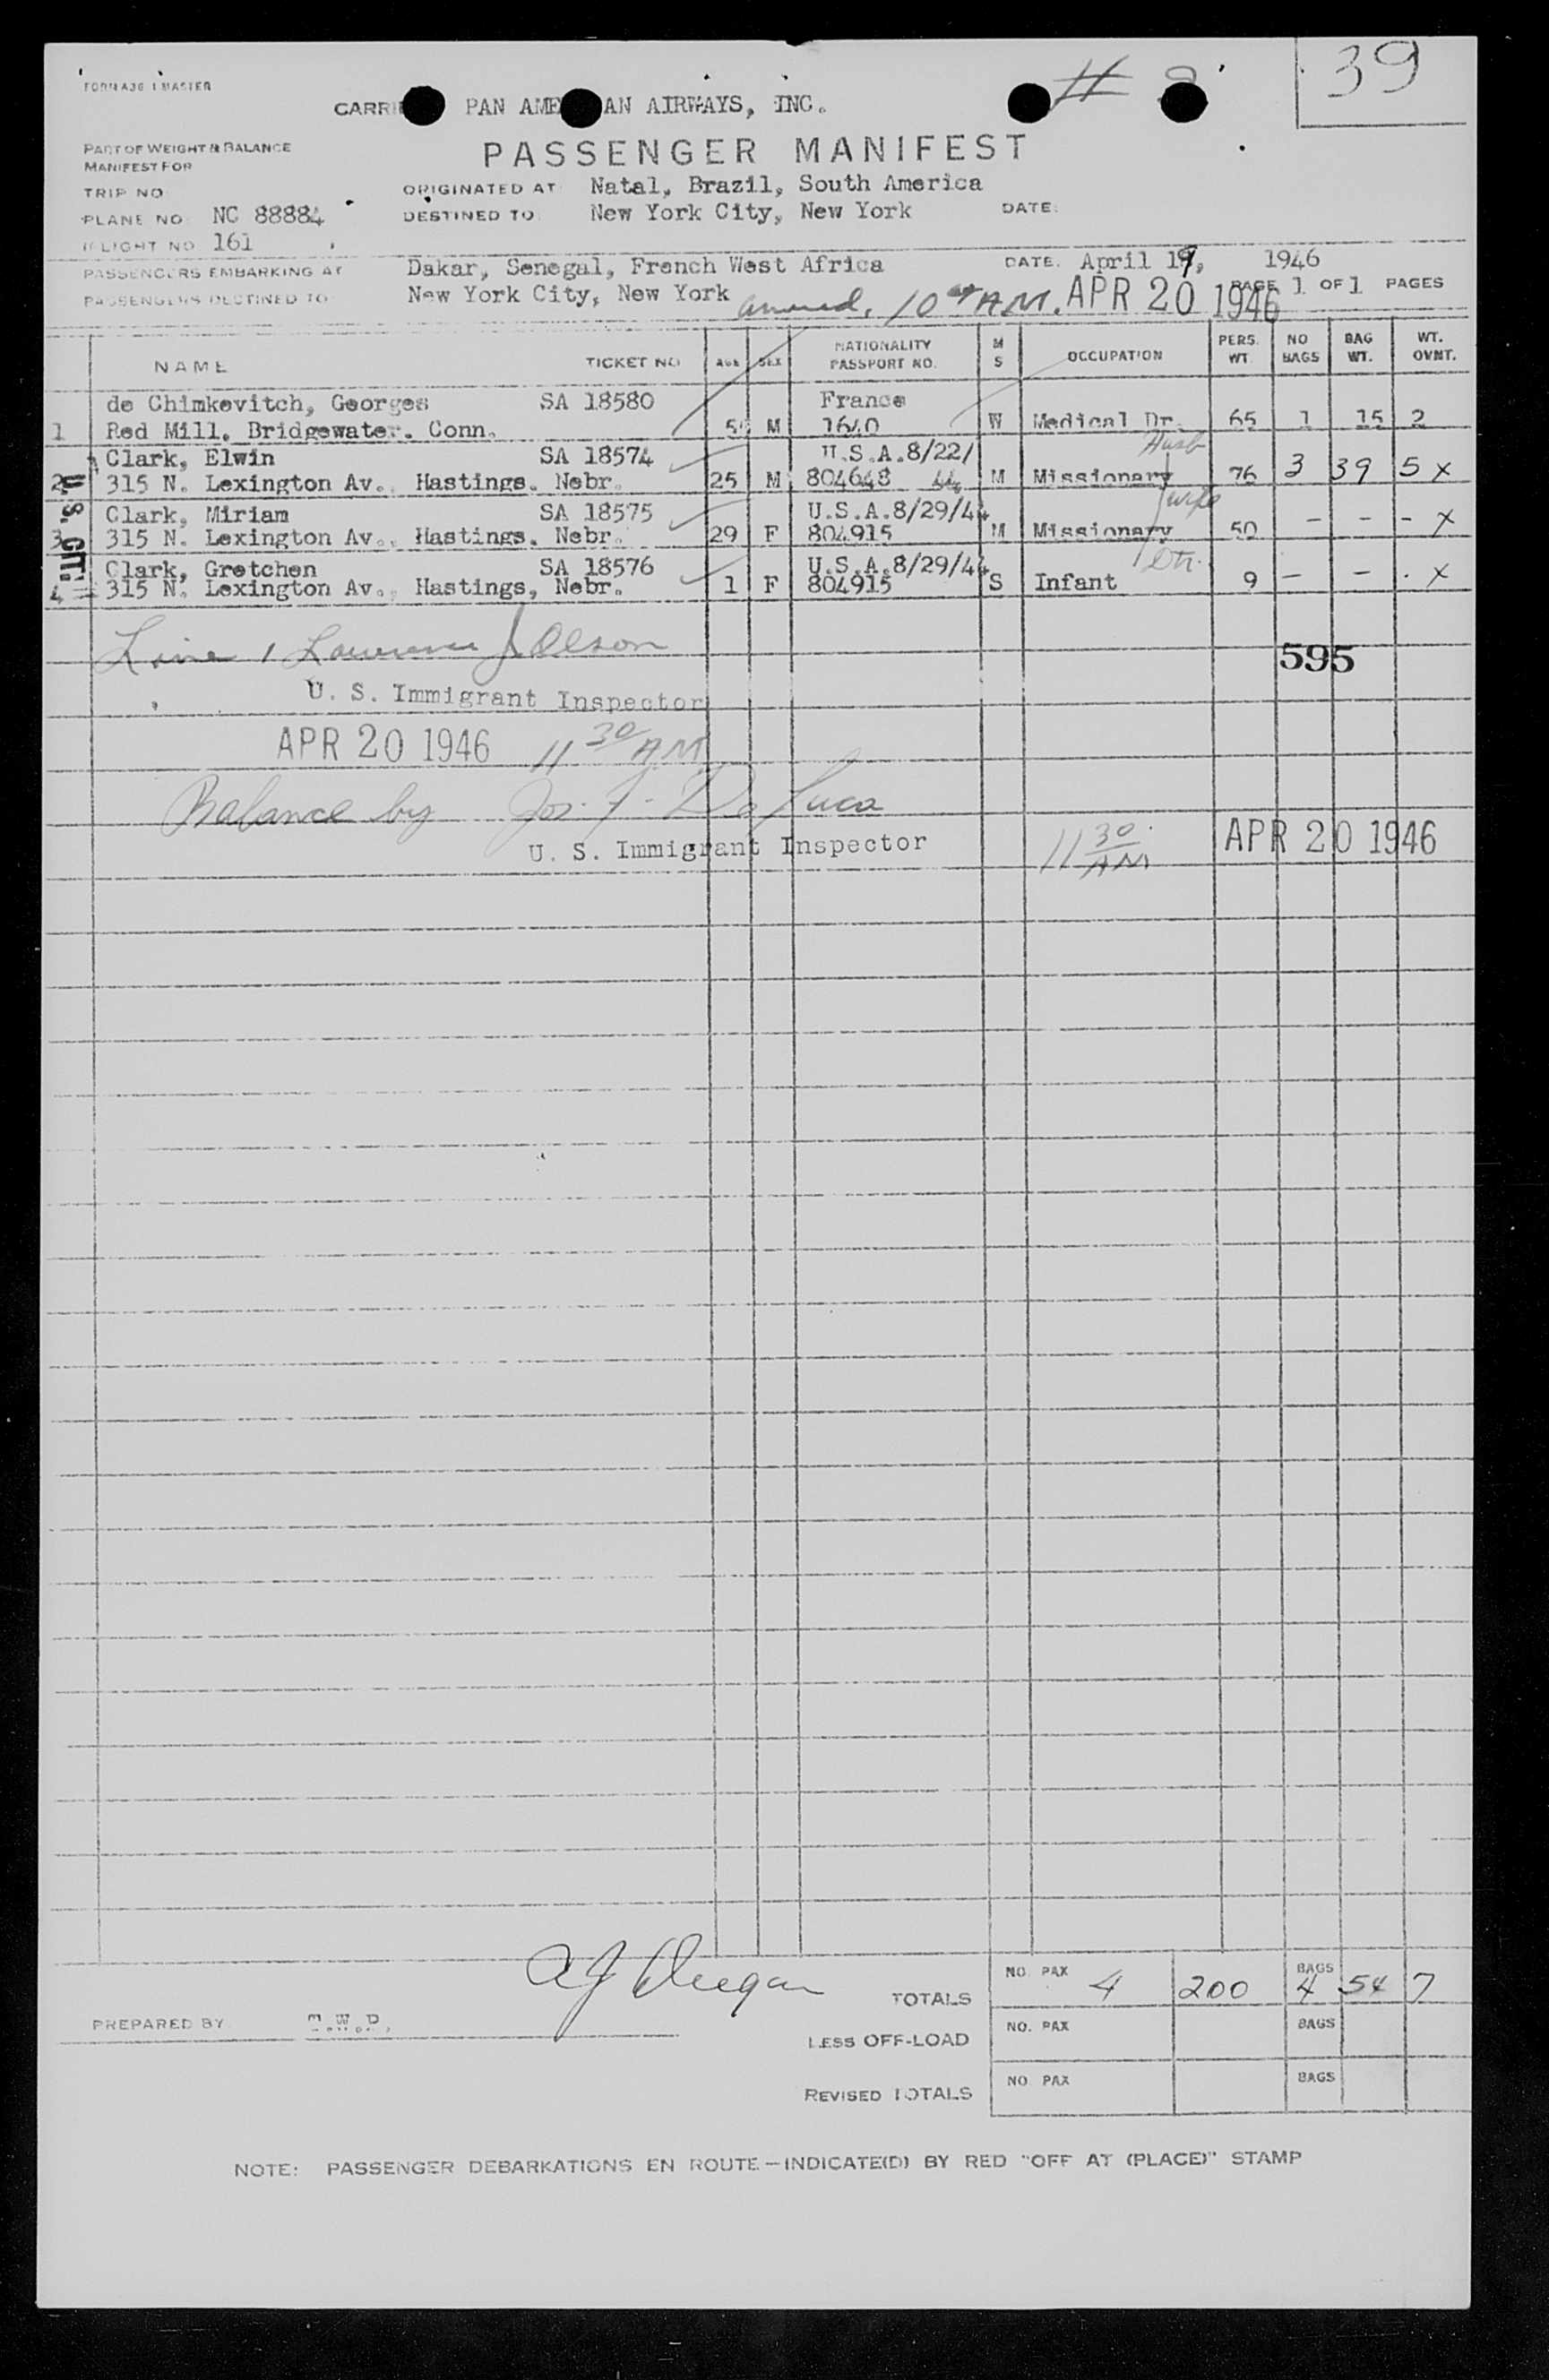 39
# 8
FORM A30 1 MASTER
CARRI PAN AME AN AIRWAYS, INC.
PASSENGER MANIFEST
PART OF WEIGHT & BALANCE
MANIFEST FOR
TRIP NO
ORIGINATED AT Natal, Brazil, South America
PLANE NO NC 88884
DESTINED TO New York City, New York DATE:
FLIGHT NO 161
PASSENGERS EMBARKING AT Dakar, Senegal, French West Africa DATE. April 19, 1946
PASSENGERS DESTINED TO New York City, New York PAGE 1 OF 1 PAGES
10 AM. APR 20 1946
NAME TICKET NO AGE SEX NATIONALITY PASSPORT NO. M S OCCUPATION PERS. WT NO BAGS BAG WT. WT. OVNT.
de Chimkevitch, Georges SA 18580 France
1 Red Mill. Bridgewater. Conn. M 1640 W Medical Dr. 65 1 15 2
Clark, Elwin SA 18574 U.S.A.8/22/ Husb
2 315 N. Lexington Av., Hastings. Nebr. 25 M 804648 44 M Missionary 76 3 39 5 x
Clark, Miriam SA 18575 U.S.A.8/29/44 wife
3 315 N. Lexington Av., Hastings. Nebr. 29 F 804915 M Missionary 50 - - - x
Clark, Gretchen SA 18576 U.S.A.8/29/44 Dtr.
4 315 N. Lexington Av., Hastings, Nebr. 1 F 804915 S Infant 9 - - . x
U.S. CIT:
Line 1 Lawrence J Olson
595
U. S. Immigrant Inspector
APR 20 1946 11 30 AM
Balance by Jos. F. De Luca
U. S. Immigrant Inspector 11 30 AM APR 20 1946
TOTALS NO. PAX 4 200 BAGS 4 54 7
PREPARED BY
LESS OFF-LOAD NO. PAX BAGS
REVISED TOTALS NO PAX BAGS
NOTE: PASSENGER DEBARKATIONS EN ROUTE—INDICATE(D) BY RED "OFF AT (PLACE)" STAMP